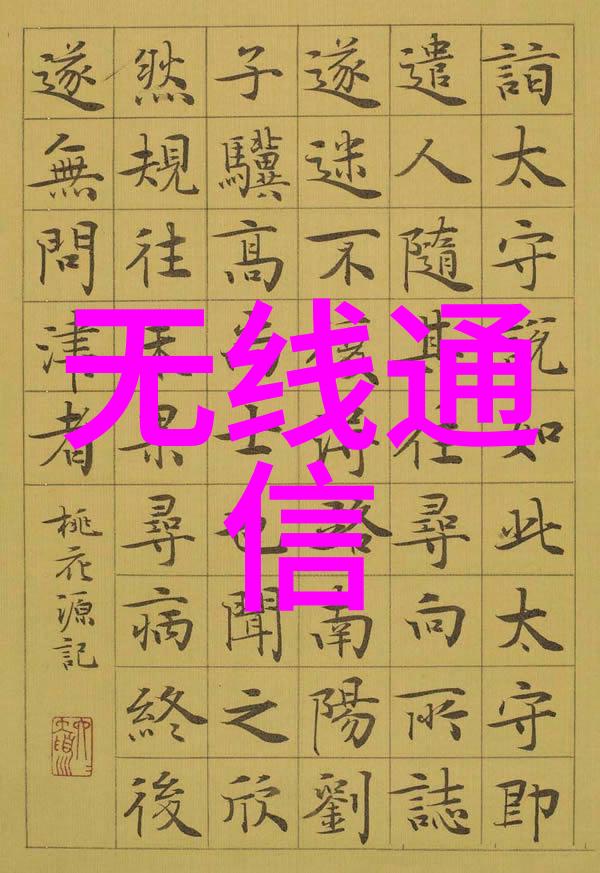 詣太守說如此太守即
遣人隨其往尋向所誌
遂迷不復得路南陽劉
子驥高尚士也聞之欣
然規往未果尋病終後
遂無問津者
桃花源記
无线通
信